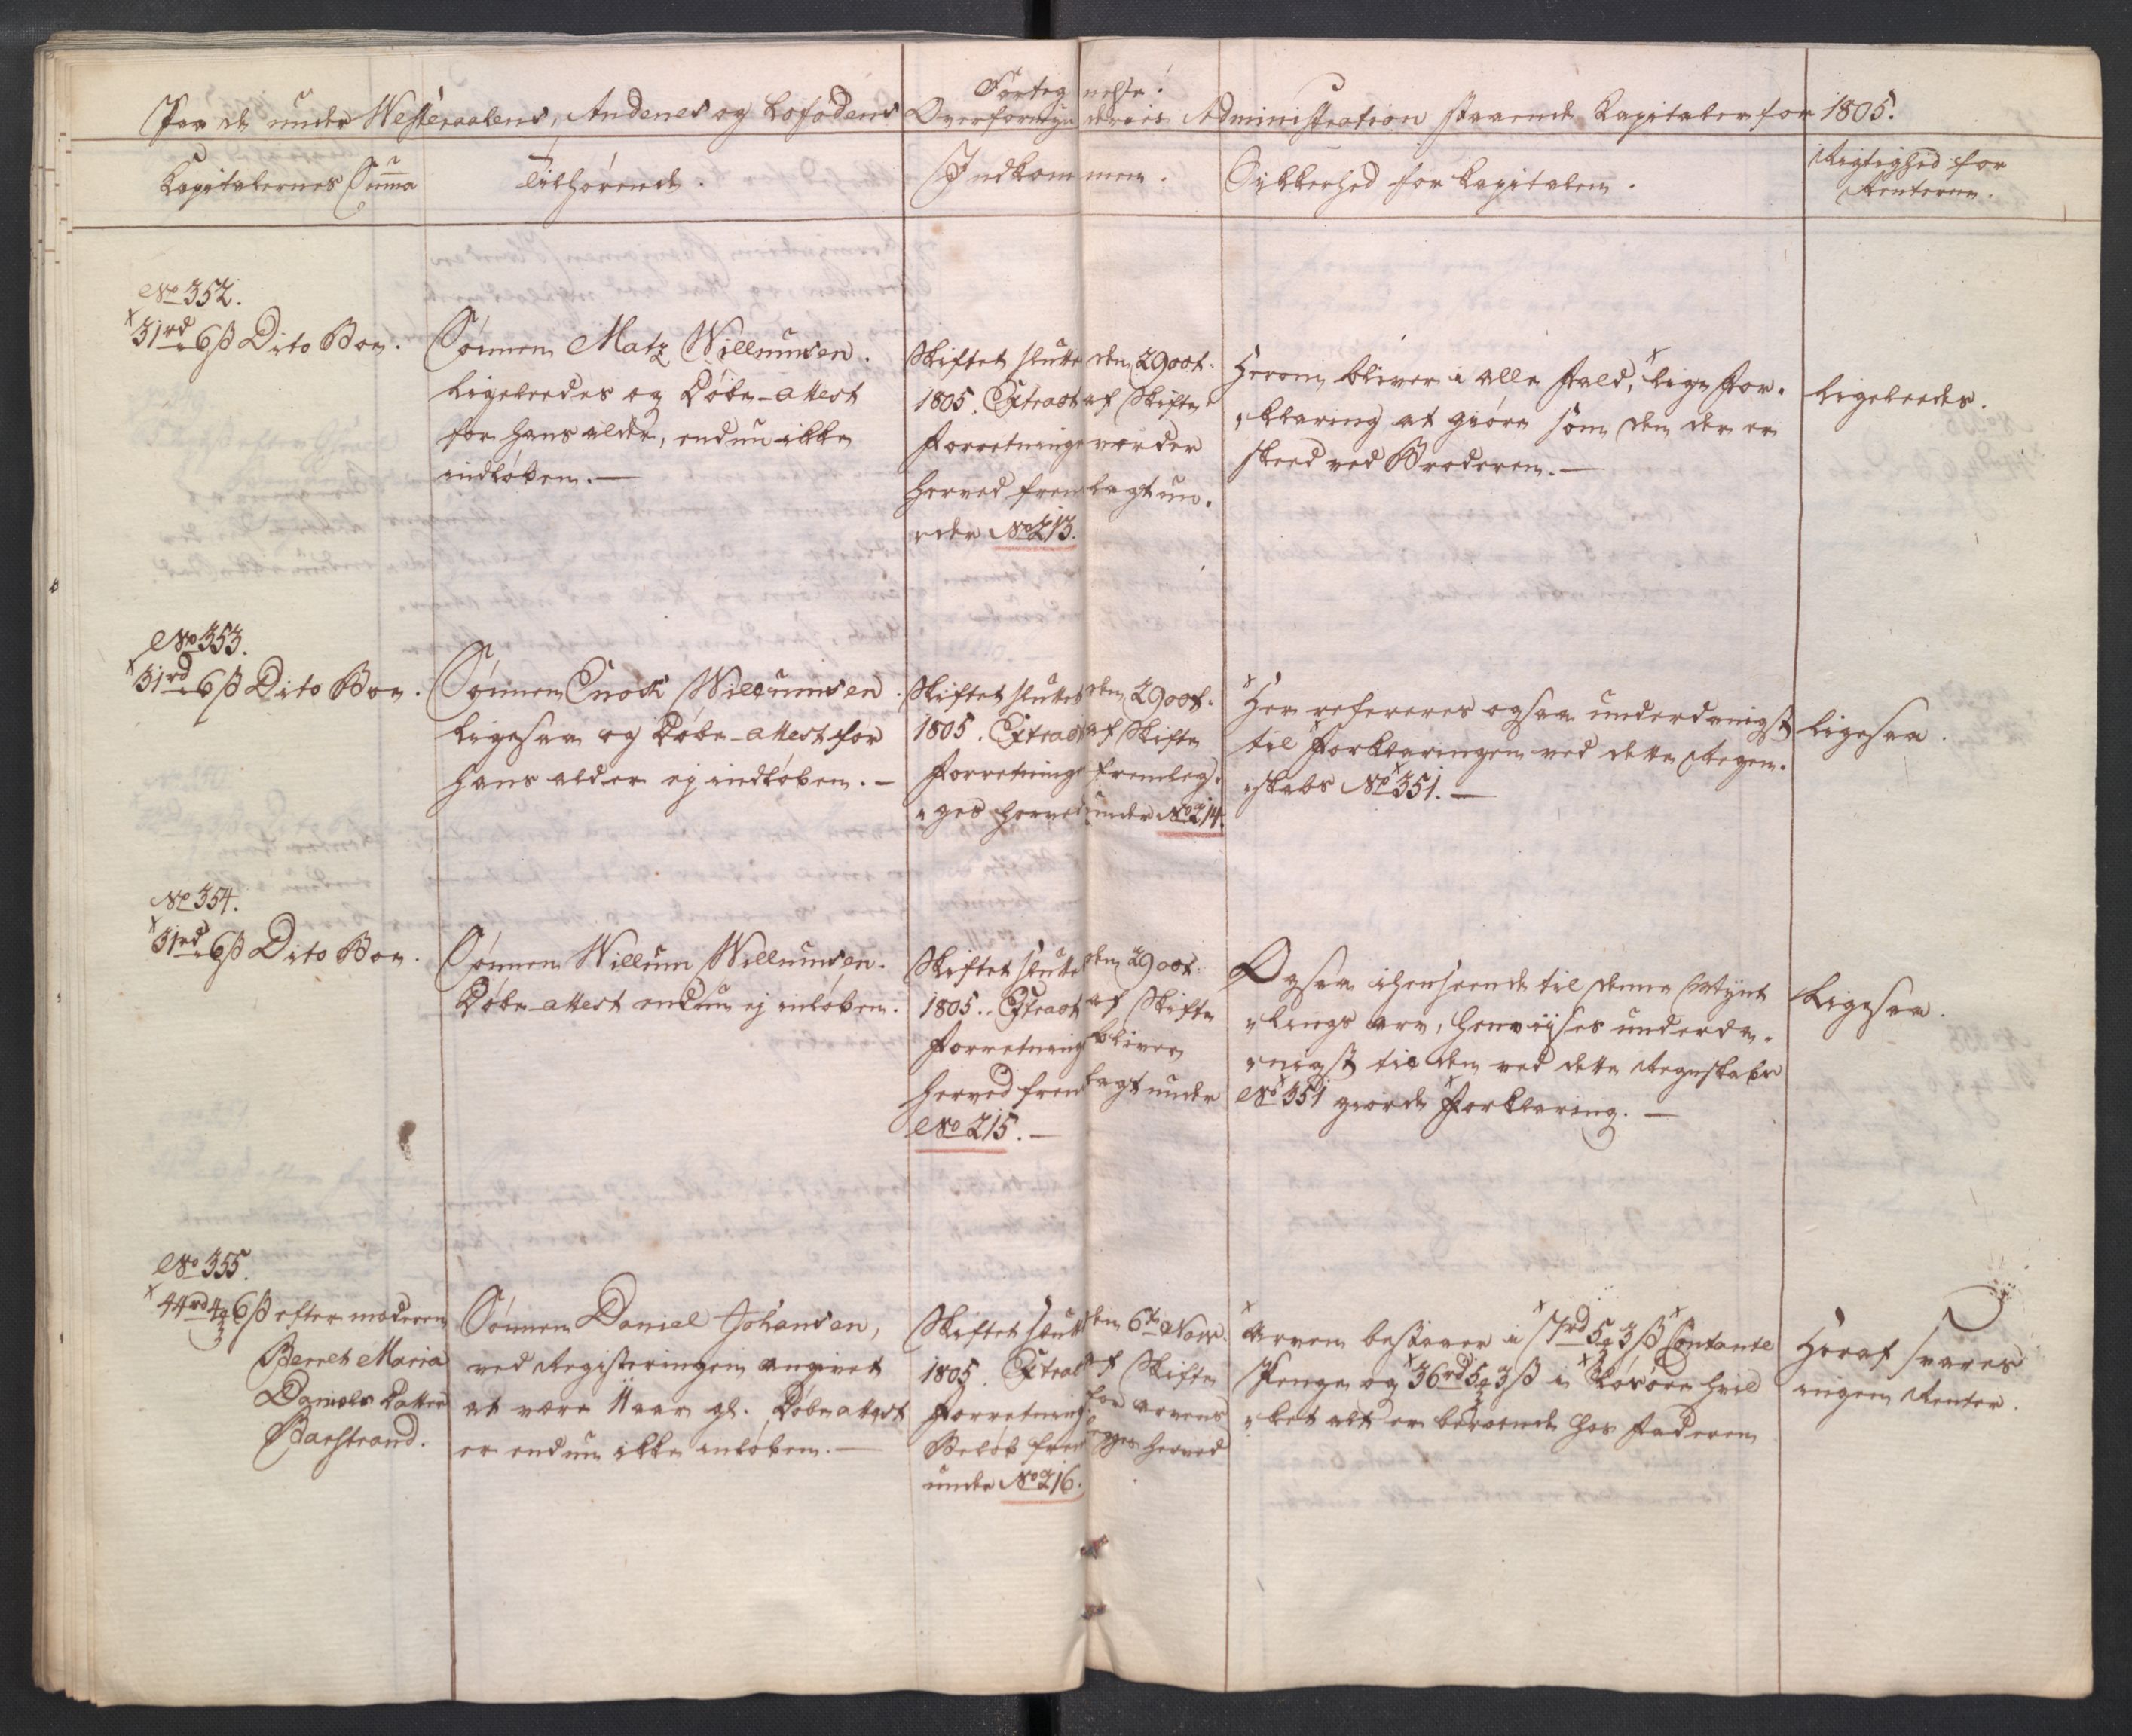 Fortegnelse.
Paa de under Westeraalens, Andenes og Lofodens Overformynderies Administration staaende Kapitaler for 1805.
Kapitalernes Summa
Tilhørende.
Indkommen.
Sikkerhed for Kapitalen.
Rigtighed for
Renterne.
No 352.
31rd 6ß Dito Boe.
Sønnen Matz Willumsen.
Ligeleedes og Døbe-attest
for hans alder, endnu ikke
indløben.—
Skiftet slutte den 29 oct.
1805. Extract af Skifte
Forretninge vorder
herved fremlagt un-
der No 213.
Herom bliver i alle Fald, lige For-
klaring at giøre som den der er
skeed ved Broderen.—
Ligeleedes.
No 353.
31rd 6ß Dito Boe.
Sønnen Enock Willumsen.
Ligesaa og Døbe-attest for
hans alder ej indløben.—
Skiftet sluttet den 29 oct.
1805. Extract af Skifte
Forretninge fremleg-
ges herved under No 214.
Her refereres ogsaa underdanigst
til Forklaringen ved dette Regen-
skabs No 351.—
Ligesaa.
No 354.
31rd 6ß Dito Boe.
Sønnen Willum Willumsen.
Døbe-attest endnu ej inløben.
Skiftet slutte den 29 oct.
1805. Extract af Skifte
Forretning bliver
herved fremlagt under
No 215.—
Ogsaa ihenseende til denne Mynt
lings arv, henviises underda-
nigst til den ved dette Regnskabs
No 351 giorde Forklaring.—
Ligesaa.
No 355.
44rd 4 6ß efter moderen
Berret Maria
Daniels Datter
Barstrand.
Sønnen Daniel Johansen,
ved Registeringen angivet
at være 11 aar gl. Døbe attest
er endnu ikke inløben.—
Skiftet slutt den 6te Novr.
1805. Extract af Skifte
Forretning for arvens
Beløb fremlegges herved
under No 216.
Arven bestaaer i 7rd 5 3ß Contante
Penge og 36rd 5 3ß i Løsøre hvil
ket alt er beroende hos Faderen
Heraf svares
ingen Renter.